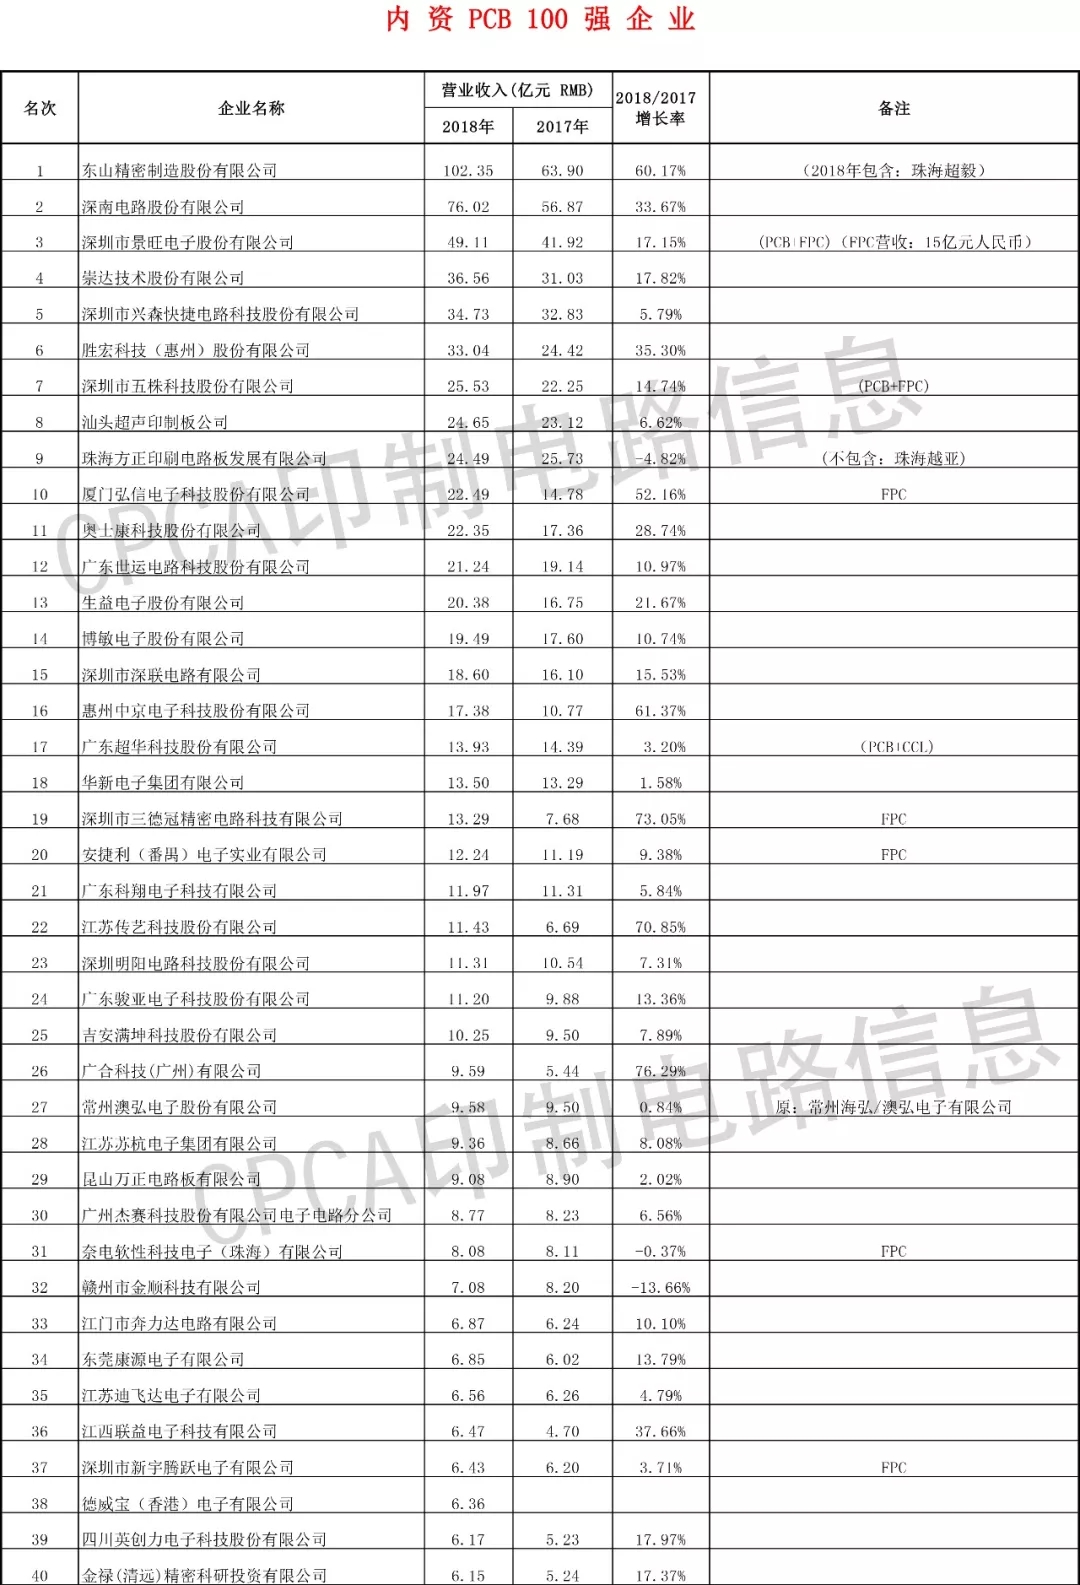 内 资 PCB 100 强 企 业
名次 企业名称 营业收入(亿元 RMB) 2018/2017 增长率 备注
2018年 2017年
1 东山精密制造股份有限公司 102.35 63.90 60.17% （2018年包含：珠海超毅）
2 深南电路股份有限公司 76.02 56.87 33.67%
3 深圳市景旺电子股份有限公司 49.11 41.92 17.15% (PCB+FPC)（FPC营收：15亿元人民币）
4 崇达技术股份有限公司 36.56 31.03 17.82%
5 深圳市兴森快捷电路科技股份有限公司 34.73 32.83 5.79%
6 胜宏科技（惠州）股份有限公司 33.04 24.42 35.30%
7 深圳市五株科技股份有限公司 25.53 22.25 14.74% (PCB+FPC)
8 汕头超声印制板公司 24.65 23.12 6.62%
9 珠海方正印刷电路板发展有限公司 24.49 25.73 -4.82% (不包含：珠海越亚)
10 厦门弘信电子科技股份有限公司 22.49 14.78 52.16% FPC
11 奥士康科技股份有限公司 22.35 17.36 28.74%
12 广东世运电路科技股份有限公司 21.24 19.14 10.97%
13 生益电子股份有限公司 20.38 16.75 21.67%
14 博敏电子股份有限公司 19.49 17.60 10.74%
15 深圳市深联电路有限公司 18.60 16.10 15.53%
16 惠州中京电子科技股份有限公司 17.38 10.77 61.37%
17 广东超华科技股份有限公司 13.93 14.39 3.20% (PCB+CCL)
18 华新电子集团有限公司 13.50 13.29 1.58%
19 深圳市三德冠精密电路科技有限公司 13.29 7.68 73.05% FPC
20 安捷利（番禺）电子实业有限公司 12.24 11.19 9.38% FPC
21 广东科翔电子科技有限公司 11.97 11.31 5.84%
22 江苏传艺科技股份有限公司 11.43 6.69 70.85%
23 深圳明阳电路科技股份有限公司 11.31 10.54 7.31%
24 广东骏亚电子科技股份有限公司 11.20 9.88 13.36%
25 吉安满坤科技股份有限公司 10.25 9.50 7.89%
26 广合科技(广州)有限公司 9.59 5.44 76.29%
27 常州澳弘电子股份有限公司 9.58 9.50 0.84% 原：常州海弘/澳弘电子有限公司
28 江苏苏杭电子集团有限公司 9.36 8.66 8.08%
29 昆山万正电路板有限公司 9.08 8.90 2.02%
30 广州杰赛科技股份有限公司电子电路分公司 8.77 8.23 6.56%
31 奈电软性科技电子（珠海）有限公司 8.08 8.11 -0.37% FPC
32 赣州市金顺科技有限公司 7.08 8.20 -13.66%
33 江门市奔力达电路有限公司 6.87 6.24 10.10%
34 东莞康源电子有限公司 6.85 6.02 13.79%
35 江苏迪飞达电子有限公司 6.56 6.26 4.79%
36 江西联益电子科技有限公司 6.47 4.70 37.66%
37 深圳市新宇腾跃电子有限公司 6.43 6.20 3.71% FPC
38 德威宝（香港）电子有限公司 6.36
39 四川英创力电子科技股份有限公司 6.17 5.23 17.97%
40 金禄(清远)精密科研投资有限公司 6.15 5.24 17.37%
CPCA印制电路信息
CPCA印制电路信息